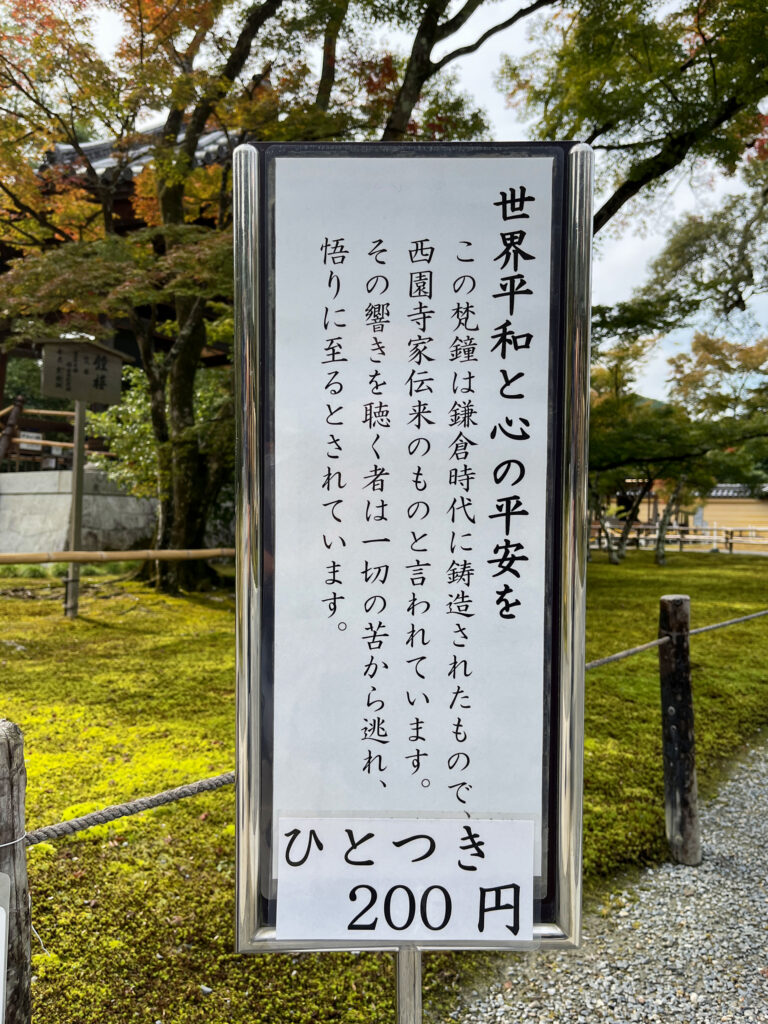 世界平和と心の平安を
この梵鐘は鎌倉時代に鋳造されたもので、
西園寺家伝来のものと言われています。
その響きを聴く者は一切の苦から逃れ、
悟りに至るとされています。
ひとつき
200円
鐘楼